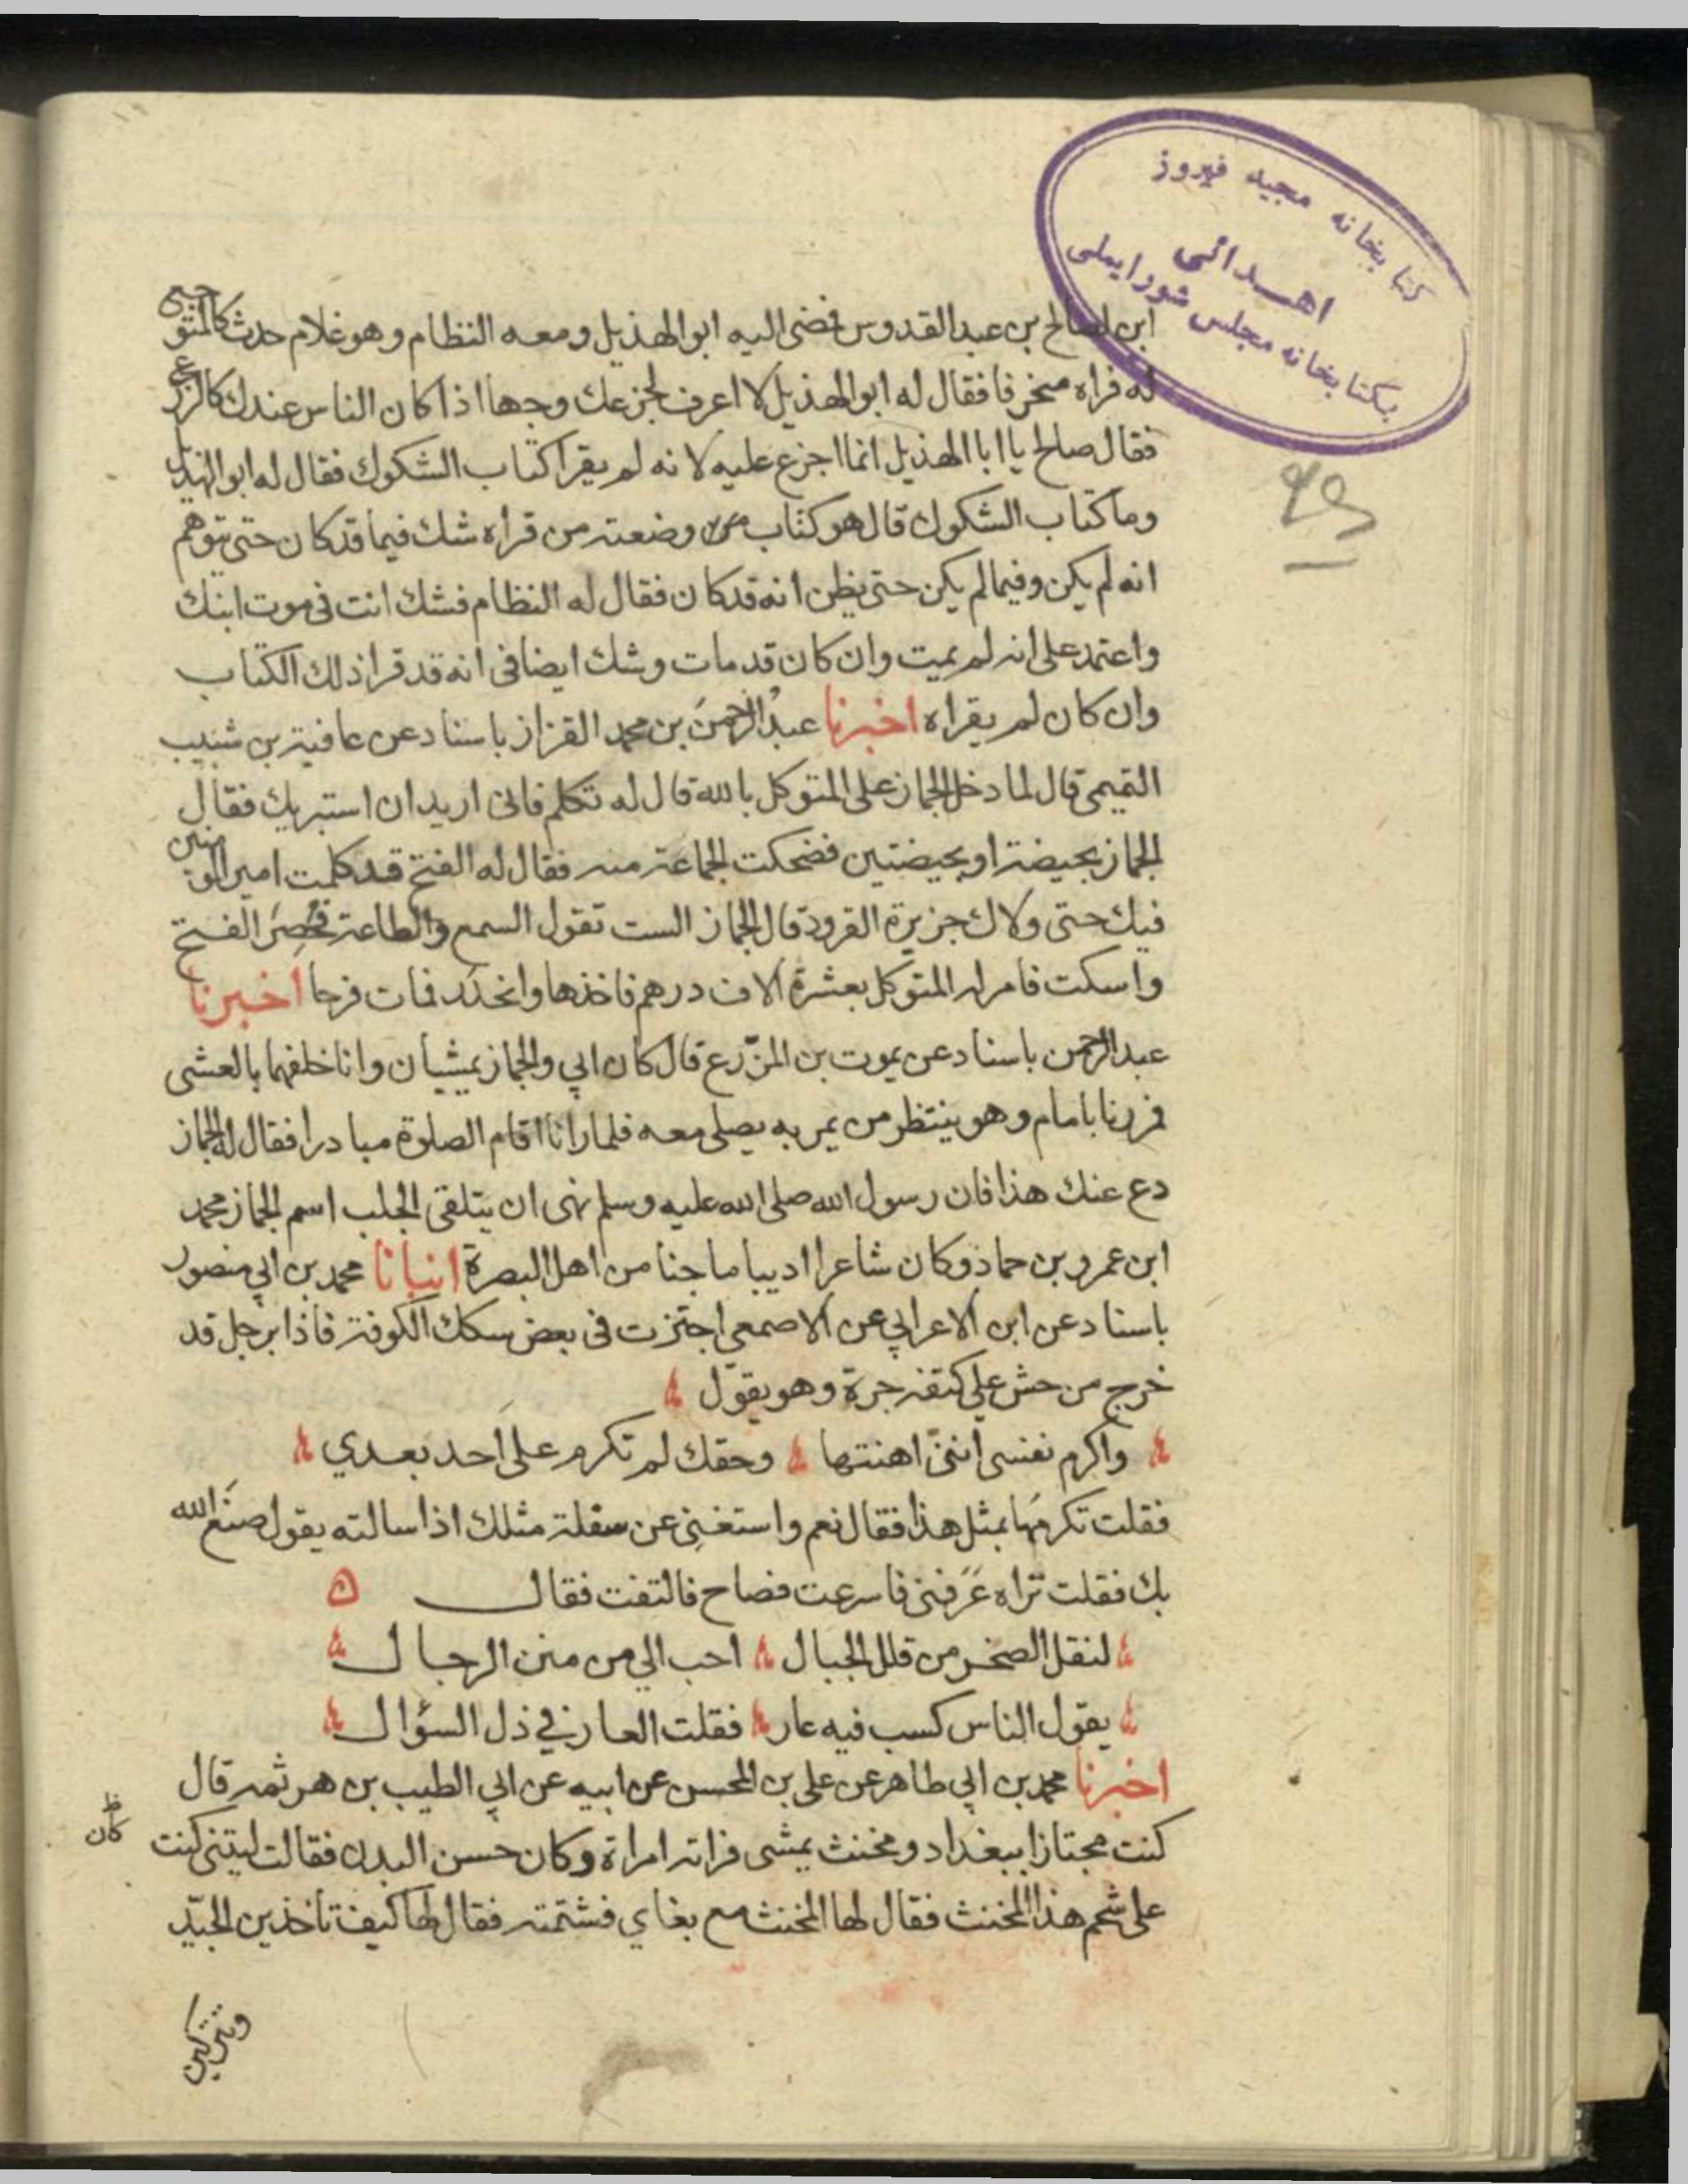 كتابخانه مجيد فيروز
اهدائى
بكتابخانه مجلس شورايملى
ابن لصالح بن عبد القدوس فمضى اليه ابو الهذيل ومعه النظام وهو غلام حدث كالمتوجع
له فراه منحرفا فقال له ابو الهذيل لا اعرف لجزعك وجها اذا كان الناس عندك كالزرع
فقال صالح يا ابا الهذيل انما اجزع عليه لانه لم يقرا كتاب الشكوك فقال له ابو الهذيل
وما كتاب الشكوك قال هو كتاب وضعته من قراه شك فيما قد كان حتى يتوهم
انه لم يكن وفيما لم يكن حتى يظن انه قد كان فقال له النظام فشك انت فى موت ابنك
واعتمد على انه لم يميت وان كان قد مات وشك ايضا فى انه قد قرا ذلك الكتاب
وان كان لم يقراه اخبرنا عبد الرحمن بن محمد القزاز باسناد عن عافية بن شبيب
التميمى قال لما دخل الجماز على المتوكل بالله قال له تكلم فانى اريد ان استبريك فقال
الجماز بحيضة او بحيضتين فضحكت الجماعة منه فقال له الفتح قد كلمت امير المومنين
فيك حتى ولاك جزيرة القرود قال الجماز الست تقول السمع والطاعة فحصر الفتح
واسكت فامر له المتوكل بعشرة الاف درهم فاخذها وانحدر فمات فرحا اخبرنا
عبد الرحمن باسناد عن يموت بن المزرع قال كان ابي والجماز يمشيان وانا خلفهما بالعشى
فمررنا بامام وهو ينتظر من يمر به يصلى معه فلما رانا اقام الصلوة مبادرا فقال له الجماز
دع عنك هذا فان رسول الله صلى الله عليه وسلم نهى ان يتلقى الجلب اسم الجماز محمد
ابن عمرو بن حماد وكان شاعرا اديبا ماجنا من اهل البصرة انبانا محمد بن ابي منصور
باسناد عن ابن الاعرابي عن الاصمعى اجتزت فى بعض سكك الكوفة فاذا برجل قد
خرج من حش علي كتفه جرة وهو يقول
واكرم نفسى اننى اهنتها وحقك لم تكرم على احد بعدي
فقلت تكرمها بمثل هذا فقال نعم واستغنى عن سفلة مثلك اذا سالته يقول صنع الله
بك فقلت تراه عرفنى فاسرعت فصاح فالتفت فقال
لنقل الصخر من قلل الجبال احب الي من منن الرجال
يقول الناس كسب فيه عار فقلت العار في ذل السؤال
اخبرنا محمد بن ابي طاهر عن على بن المحسن عن ابيه عن ابي الطيب بن هرثمه قال
كنت مجتازا ببغداد ومخنث يمشى فراته امراة وكان حسن البدن فقالت ليتنى كنت
ظ
كان
على شحم هذا المخنث فقال لها المخنث مع بغاي فشتمته فقال لها كيف تاخذين الجيد
وتتركين